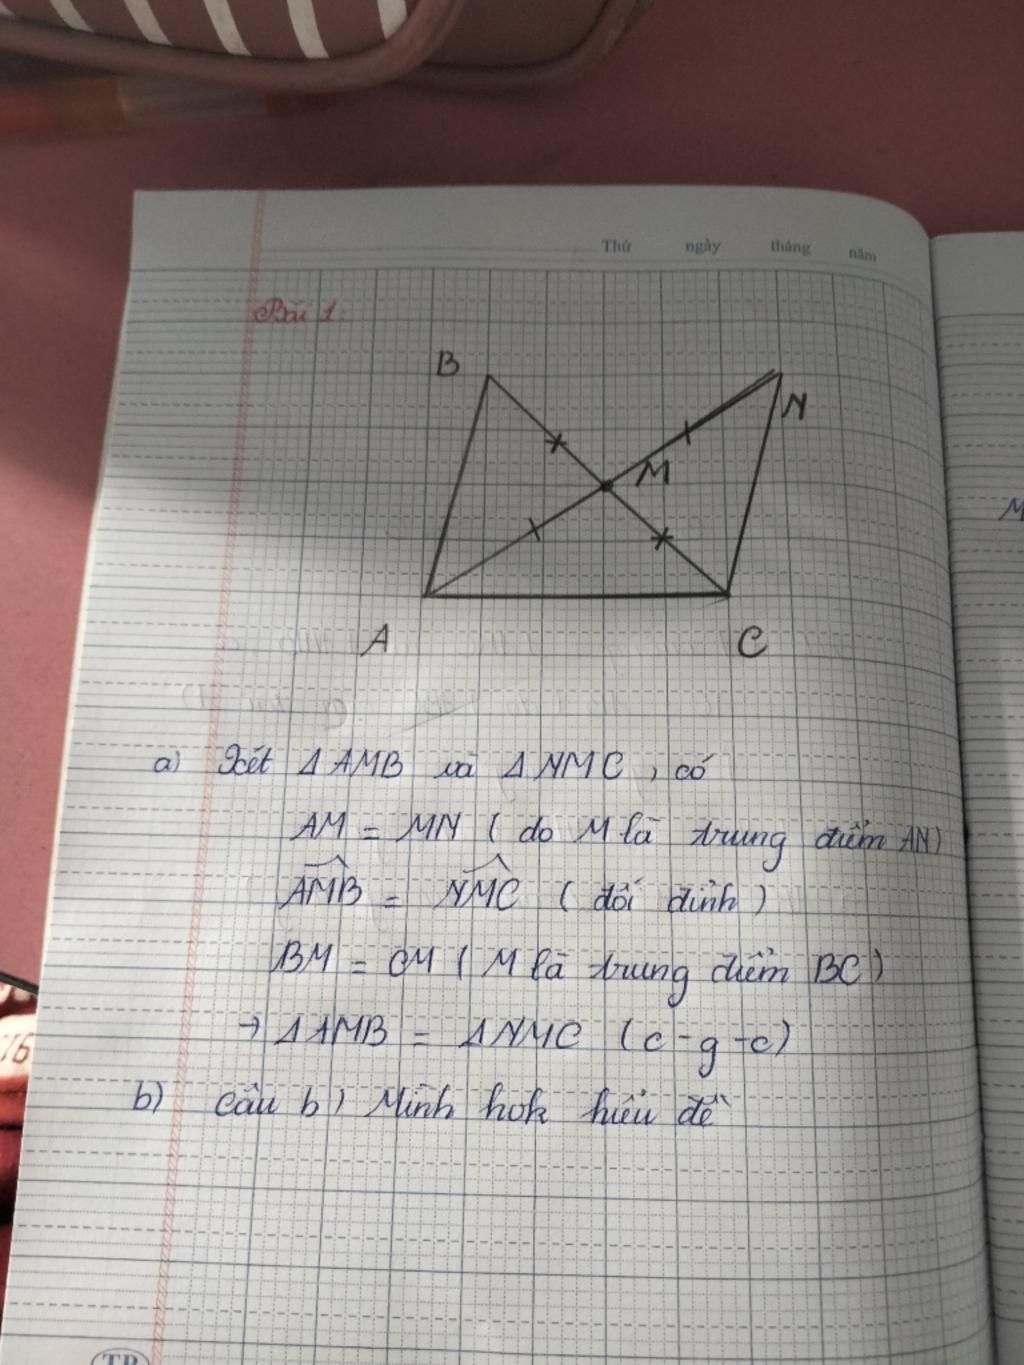 Thứ ngày tháng năm
Bài 1:
B
N
M
A
C
M
a) Xét Δ AMB và Δ NMC, có
AM = MN ( do M là trung điểm AN)
AMB = NMC ( đối đỉnh )
BM = CM ( M là trung điểm BC )
→ Δ AMB = Δ NMC ( c - g - c)
b) câu b) Mình hok hiểu đề
TP